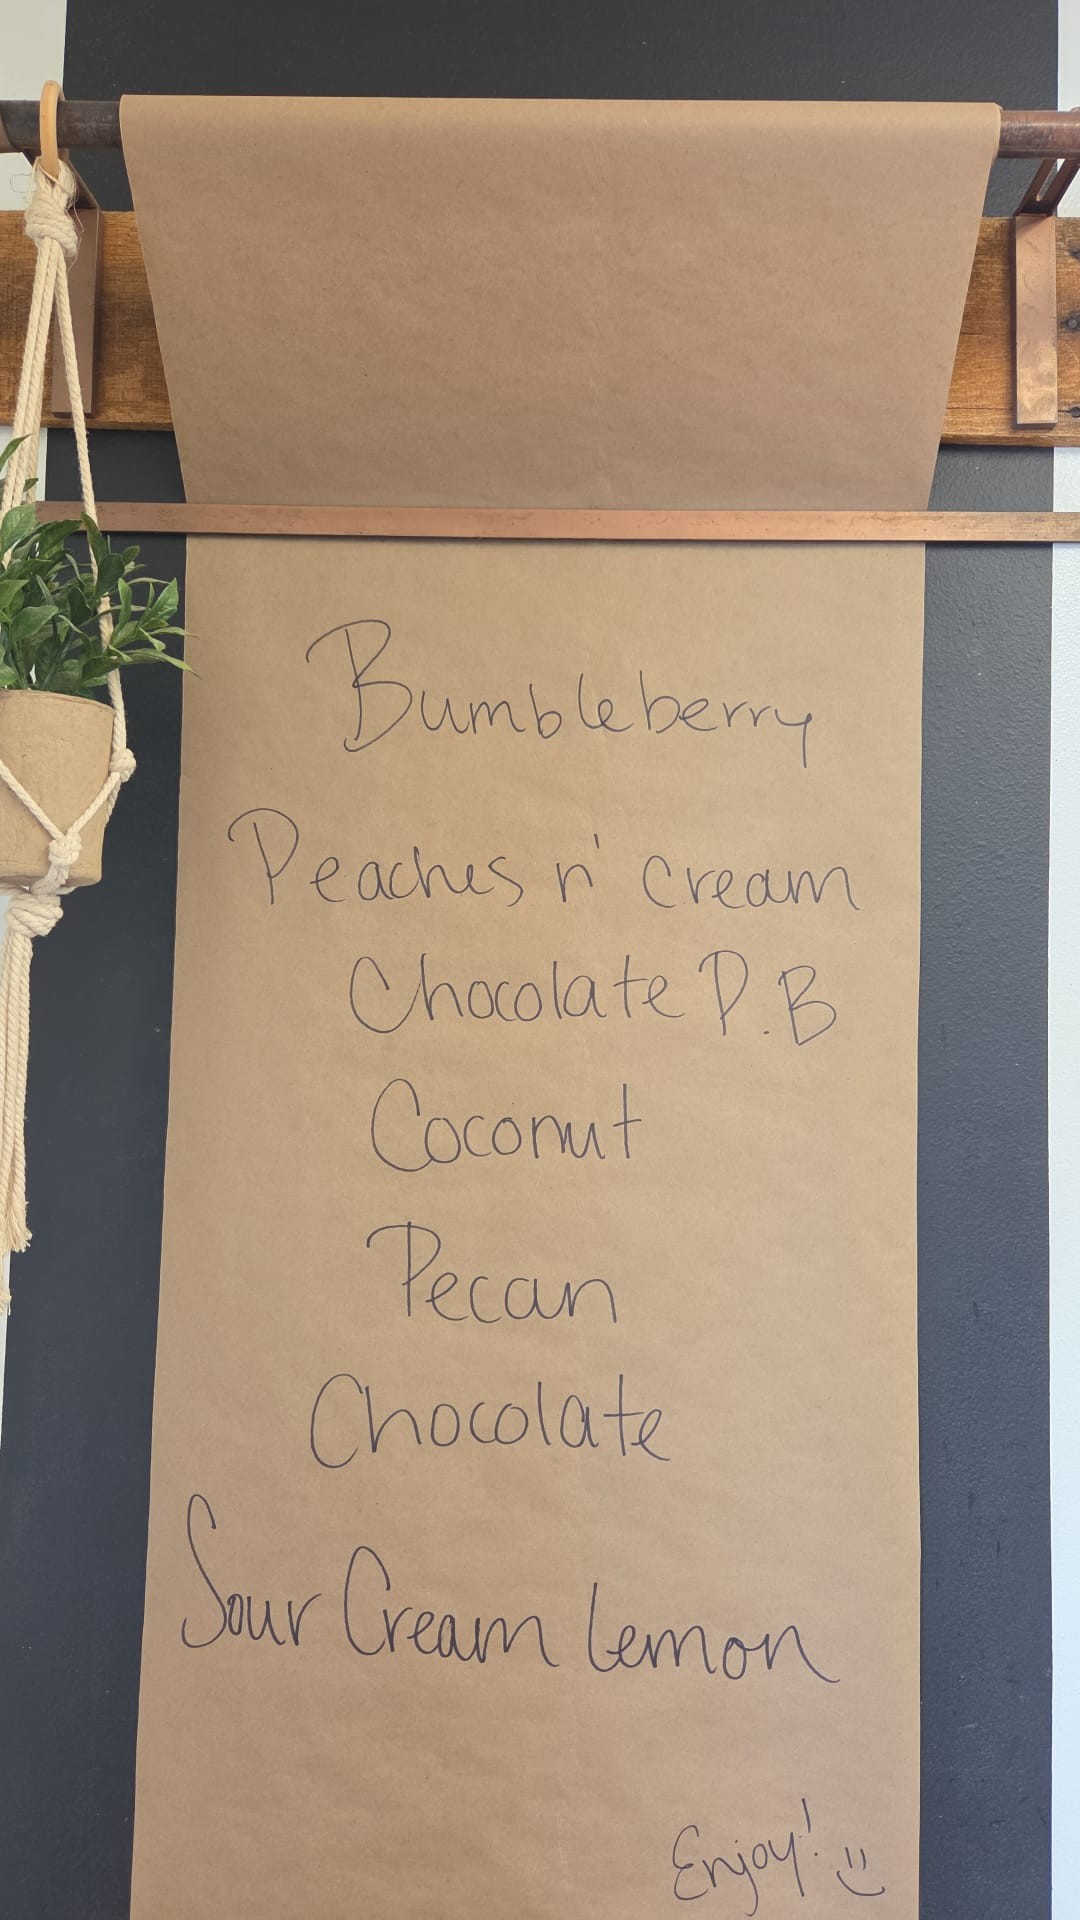 Bumbleberry
Peaches n' cream
Chocolate P.B
Coconut
Pecan
Chocolate
Sour Cream Lemon
Enjoy!